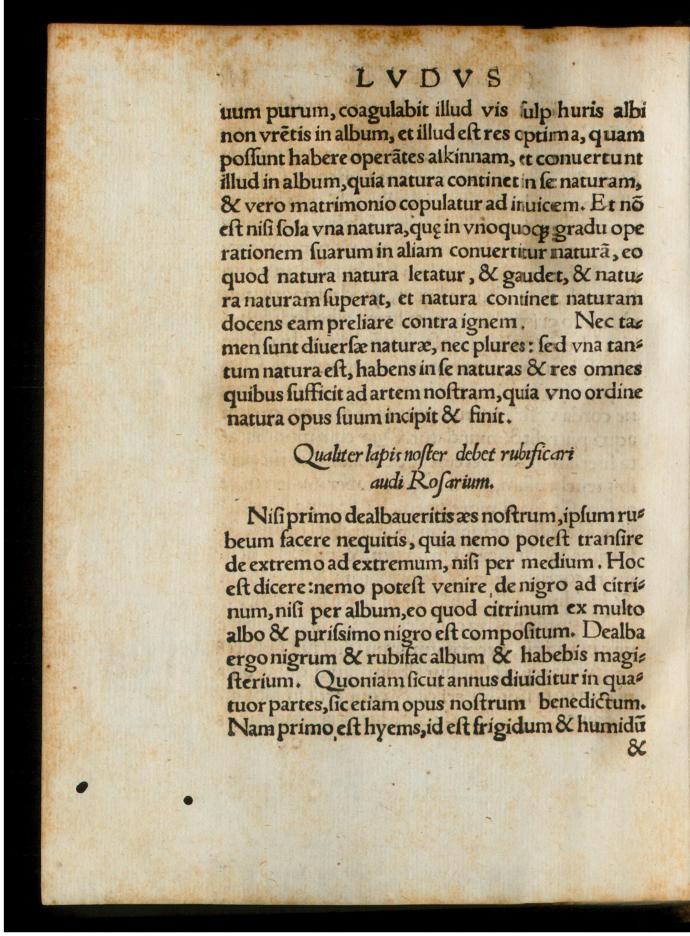 LVDVS
uum purum, coagulabit illud vis ſulphuris albi
non vrētis in album, et illud eſt res optima, quam
poſſunt habere operātes alkinnam, et conuertunt
illud in album, quia natura continet in ſe naturam,
& vero matrimonio copulatur ad inuicem. Et nō
eſt niſi ſola vna natura, quę in vnoquoqꝫ gradu ope
rationem ſuarum in aliam conuertitur naturā, eo
quod natura natura letatur, & gaudet, & natu⸗
ra naturam ſuperat, et natura continet naturam
docens eam preliare contra ignem. Nec ta⸗
men ſunt diuerſæ naturæ, nec plures: ſed vna tan⸗
tum natura eſt, habens in ſe naturas & res omnes
quibus ſufficit ad artem noſtram, quia vno ordine
natura opus ſuum incipit & finit.
Qualiter lapis noſter debet rubificari
audi Roſarium.
Niſi primo dealbaueritis æs noſtrum, ipſum ru⸗
beum facere nequitis, quia nemo poteſt tranſire
de extremo ad extremum, niſi per medium. Hoc
eſt dicere: nemo poteſt venire de nigro ad citri⸗
num, niſi per album, eo quod citrinum ex multo
albo & puriſsimo nigro eſt compoſitum. Dealba
ergo nigrum & rubifac album & habebis magi⸗
ſterium. Quoniam ſicut annus diuiditur in qua⸗
tuor partes, ſic etiam opus noſtrum benedictum.
Nam primo eſt hyems, id eſt frigidum & humidū
&